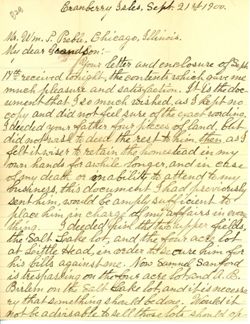 Cranberry Isles, Sept. 21st 1900.
Mr. Wm. P. Preble, Chicago, Illinois.
My dear Grandson:-
Your letter and enclosure of Sept.
18th received tonight, the contents which give me
much pleasure and satisfaction. It is the docu-
ment that I so much wished, as I kept no
copy and did not feel sure of the exact wording.
I deeded your father four pieces of land, but
did not want to deed the rest to him then as I
felt it wise to retain the homestead in my
own hands for awhile longer, and in case
of my death or inability to attend to my
business, this document I had previously
sent him, would be amply sufficient to
place him in charge of my affairs in every
thing. I deeded him the two upper fields,
the Salt Lake lot, and the four acre lot
at Little Head, in order to secure him for
his bills against me. Now Samuel Sanford
is trespassing on the four acre lot and A. C.
on the Salt Lake lot and it is neces-
sary that something should be done. Would it
not be advisable to sell those lots should op-